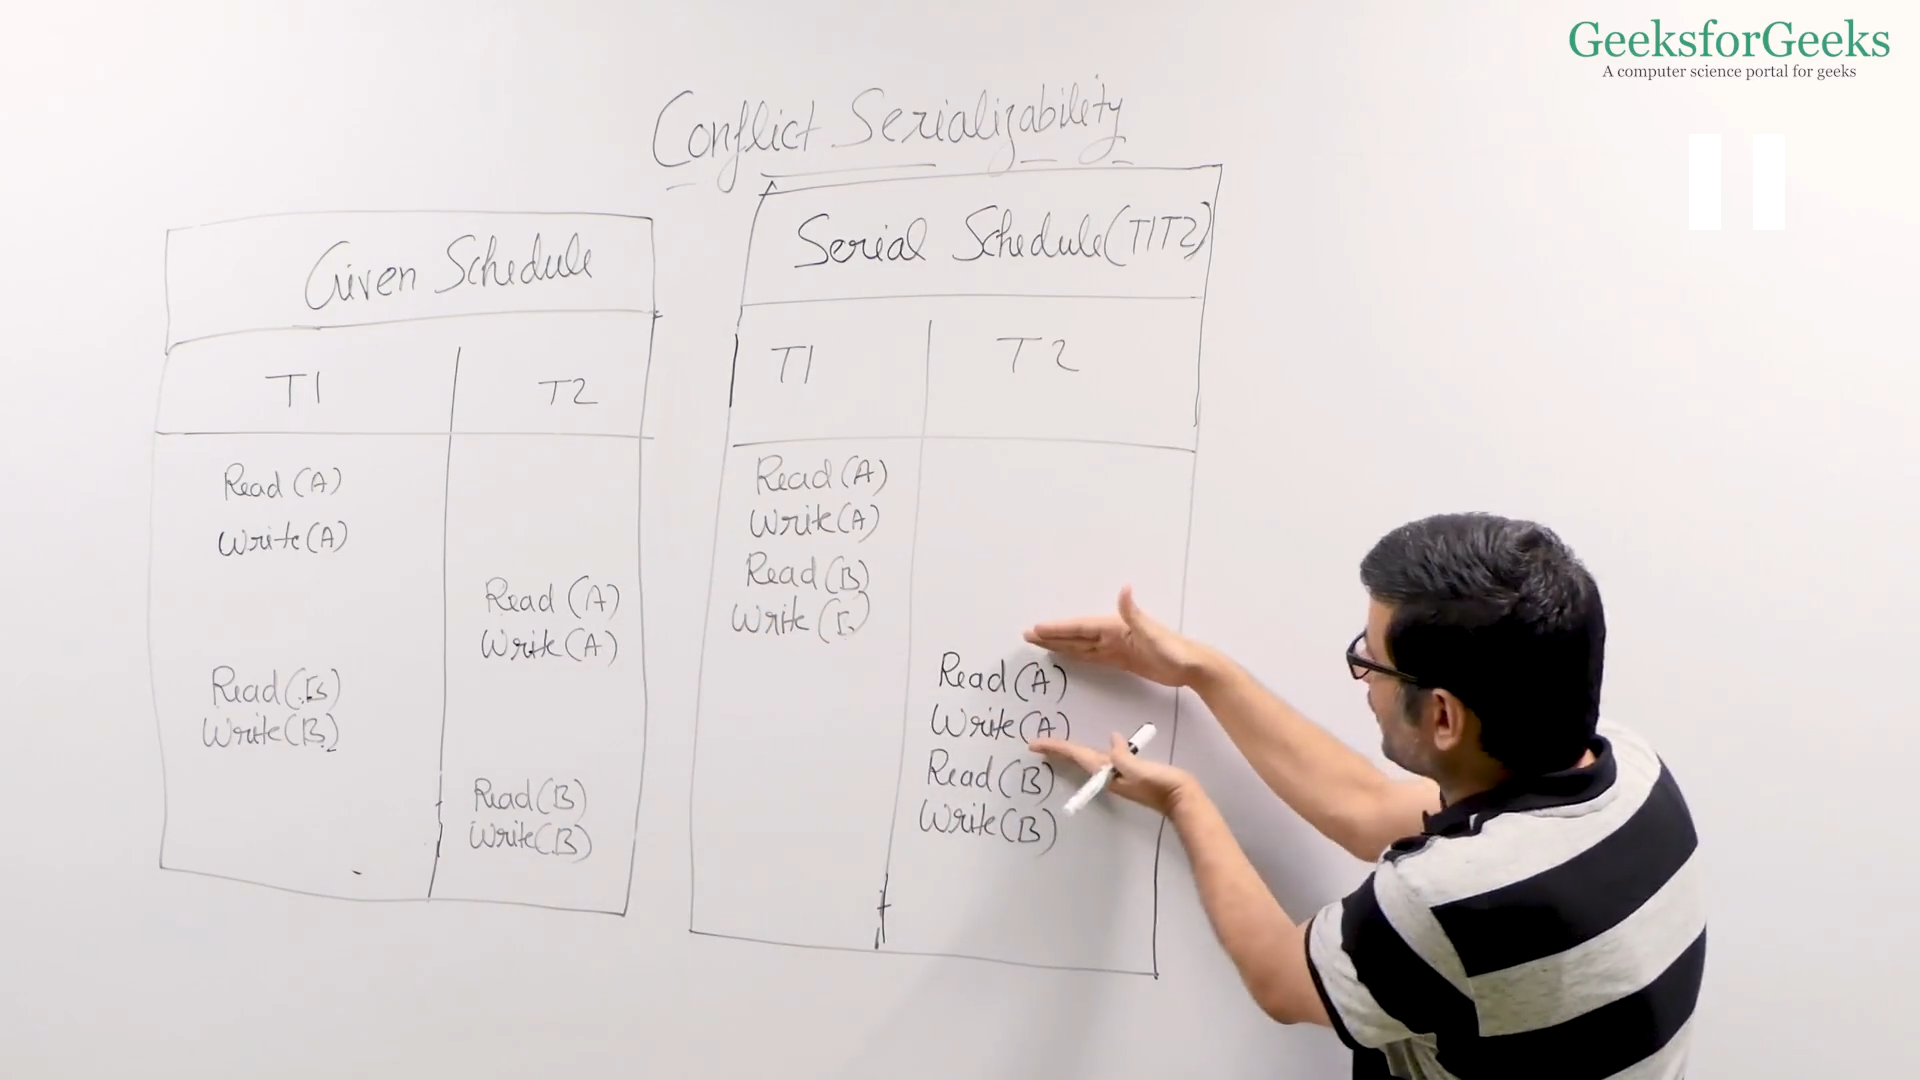 GeeksforGeeks
A computer science portal for geeks
Conflict Serializability
Given Schedule
T1 T2
Read (A)
Write (A)
Read (A)
Write (A)
Read (
Write (B)
Read (B)
Write (B)
Serial Schedule (T1T2)
T1 T2
Read (A)
Write (A)
Read (B)
Write (
Read (A)
Write (A)
Read (B)
Write (B)